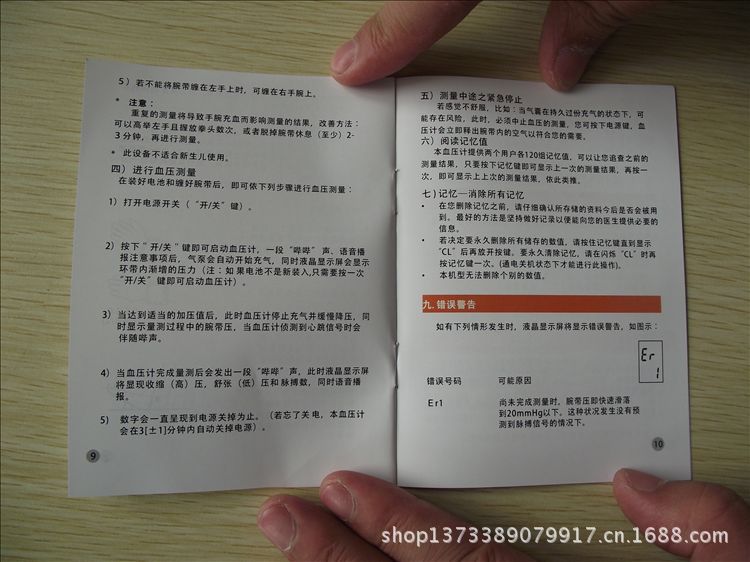 5）若不能将腕带缠在左手上时，可缠在右手腕上。
* 注意：
重复的测量将导致手腕充血而影响测量的结果，改善方法：
可以高举左手且握放拳头数次，或者脱掉腕带休息（至少）2-
3 分钟，再进行测量。
* 此设备不适合新生儿使用。
四）进行血压测量
在装好电池和缠好腕带后，即可依下列步骤进行血压测量：
1）打开电源开关（“开/关”键）。
2）按下“开/关”键即可启动血压计，一段“哔哔”声、语音播
报注意事项后，气泵会自动开始充气，同时液晶屏会显示
环带内渐增的压力（注：如果电池不是新装入,只需要按一次
“开/关”键即可启动血压计）。
3）当达到适当的加压值后，此时血压计停止充气并缓慢降压，同
时显示量测过程中的腕带压，当血压计侦测到心跳信号时会
伴随哔声。
4）当血压计完成量测后会发出一段“哔哔”声，此时液晶显示屏
将显现收缩（高）压，舒张（低）压和脉搏数，同时语音播
报。
5）数字会一直呈现到电源关掉为止。（若忘了关电，本血压计
会在3[±1]分钟内自动关掉电源）。
9
五）测量中途之紧急停止
若感觉不舒服，比如：当气囊在持久过份充气的状态下，可
能存在风险，此时，必须中止血压的测量，您可按下电源键，血
压计会立即释出腕带内的空气以符合您的需要。
六）阅读记忆值
本血压计提供两个用户各120组记忆值，可以让您追查之前的
测量结果，只要按下记忆键即可显示上一次的测量结果，再按一
次，即可显示上上次的测量结果，依此类推。
七）记忆—消除所有记忆
• 在您删除记忆之前，请仔细确认所存储的资料今后是否会被用
到。最好的方法是坚持做好记录以便能向您的医生提供必要的
信息。
• 若决定要永久删除所有储存的数值，请按住记忆键直到显示
“CL”后再放开按键。要永久清除记忆，请在闪烁“CL”时再
按记忆键一次。(通电关机状态下才能进行此操作)。
• 本机型无法删除个别的数值。
九. 错误警告
如有下列情形发生时，液晶显示屏将显示错误警告，如图示：
Er
1
错误号码 可能原因
Er1 尚未完成测量时，腕带压即快速滑落
到20mmHg以下。这种状况发生没有预
测到脉搏信号的情况下。
10
shop1373389079917.cn.1688.com